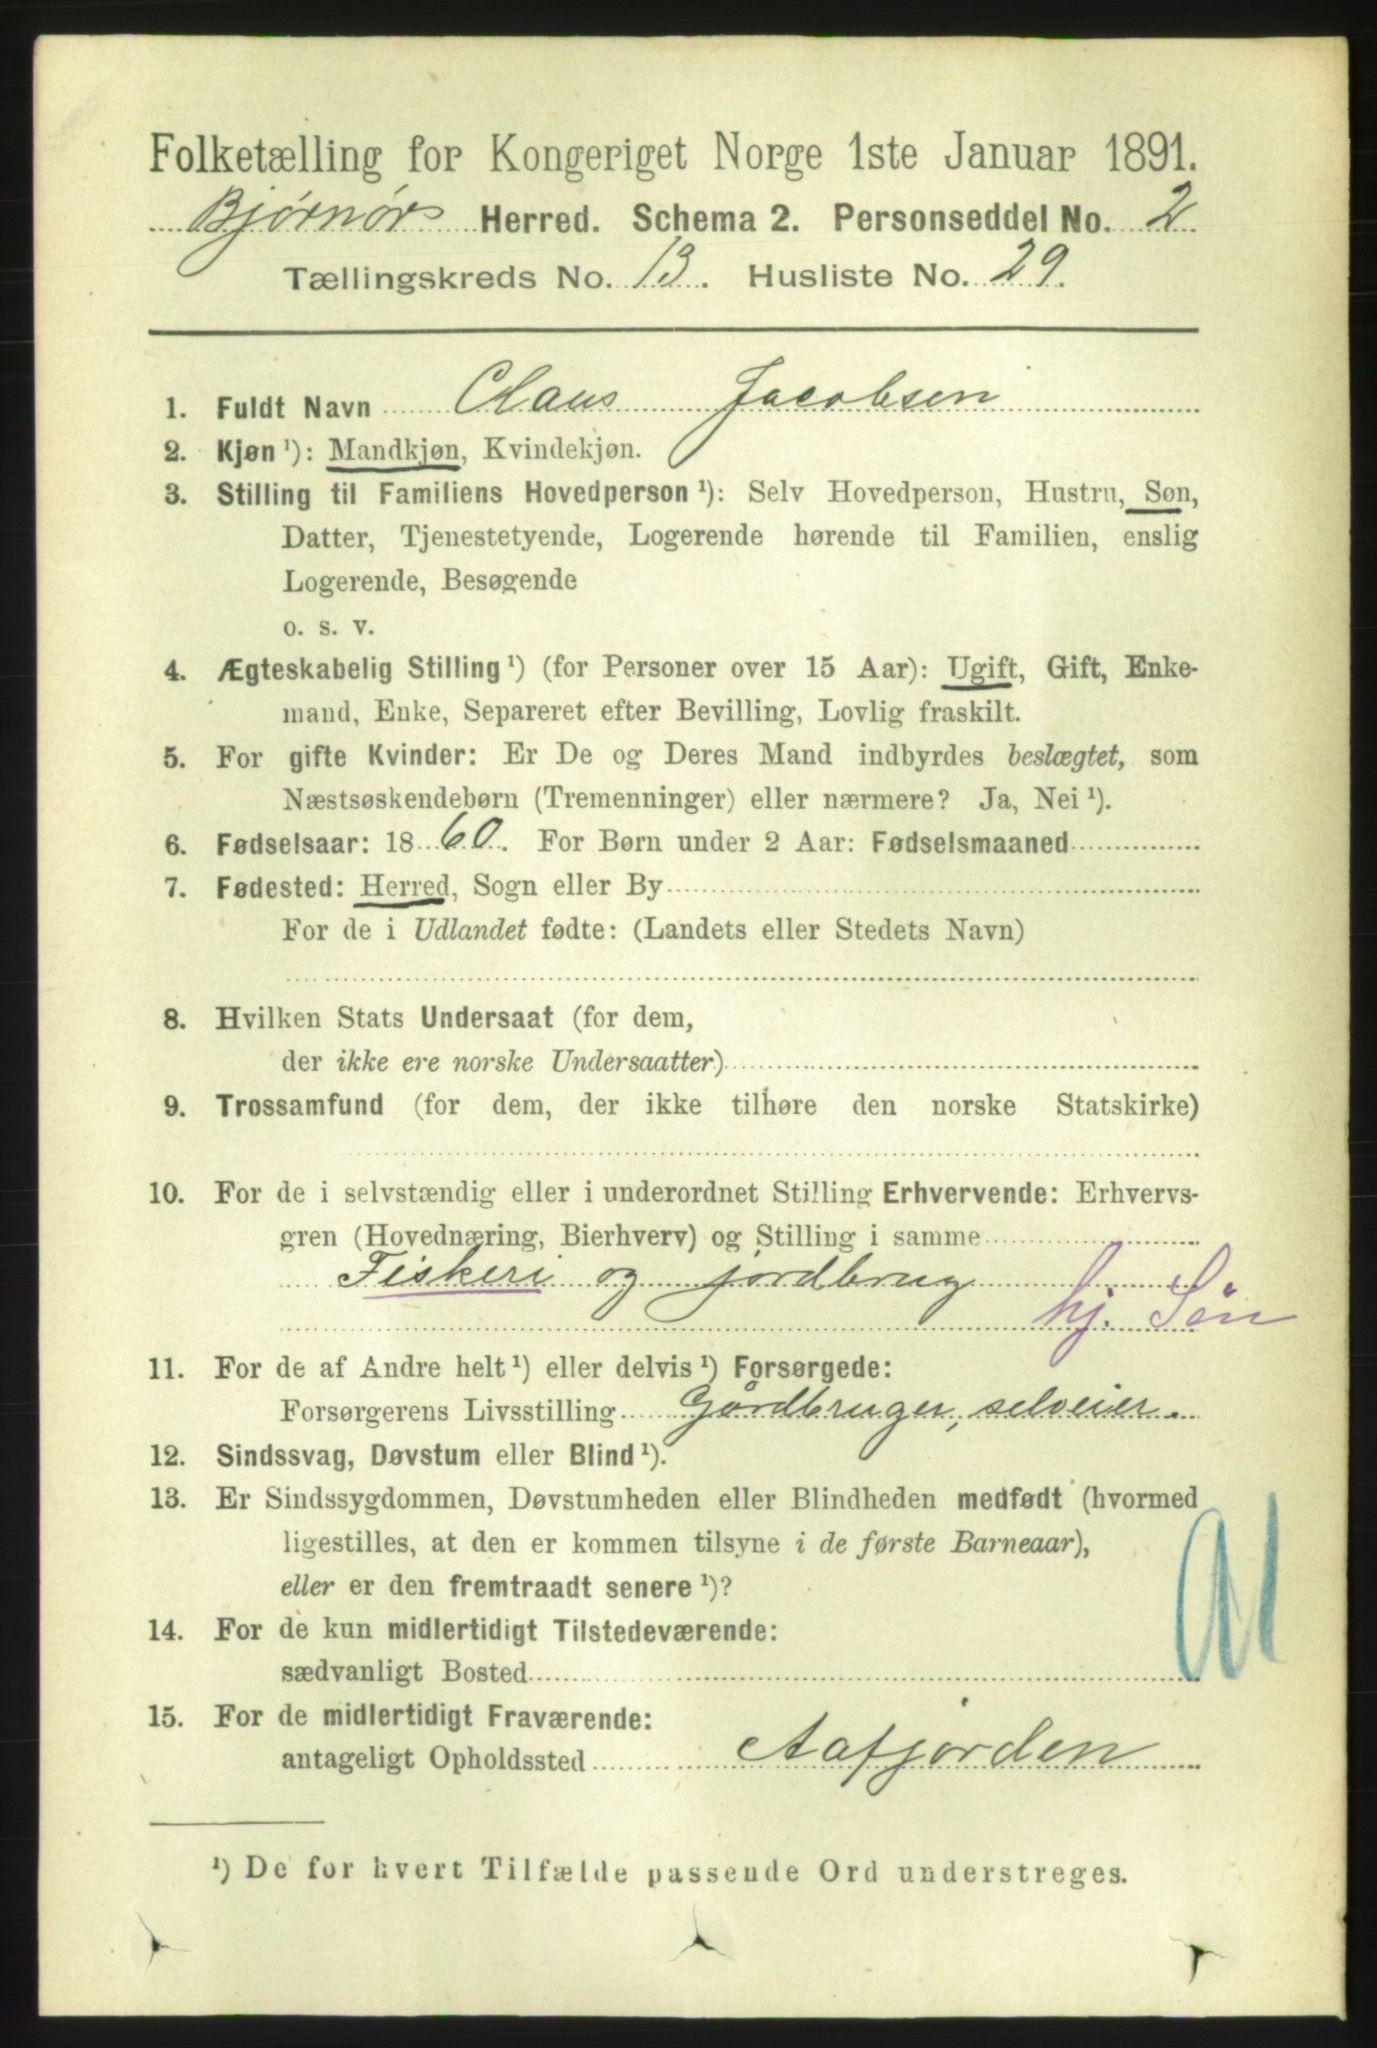 Folketælling for Kongeriget Norge 1ste Januar 1891.
Bjørnørs Herred. Schema 2. Personseddel No. 2
Tællingskreds No. 13. Husliste No. 29.
1. Fuldt Navn Claus Jacobsen
2. Kjøn ¹): Mandkjøn, Kvindekjøn.
3. Stilling til Familiens Hovedperson ¹): Selv Hovedperson, Hustru, Søn,
Datter, Tjenestetyende, Logerende hørende til Familien, enslig
Logerende, Besøgende
o. s. v.
4. Ægteskabelig Stilling ¹) (for Personer over 15 Aar): Ugift, Gift, Enke-
mand, Enke, Separeret efter Bevilling, Lovlig fraskilt.
5. For gifte Kvinder: Er De og Deres Mand indbyrdes beslægtet, som
Næstsøskendebørn (Tremenninger) eller nærmere? Ja, Nei ¹).
6. Fødselsaar: 1860. For Børn under 2 Aar: Fødselsmaaned
7. Fødested: Herred, Sogn eller By
For de i Udlandet fødte: (Landets eller Stedets Navn)
8. Hvilken Stats Undersaat (for dem,
der ikke ere norske Undersaatter)
9. Trossamfund (for dem, der ikke tilhøre den norske Statskirke)
10. For de i selvstændig eller i underordnet Stilling Erhvervende: Erhvervs-
gren (Hovednæring, Bierhverv) og Stilling i samme
Fiskeri og jordbrug
hj. Søn
11. For de af Andre helt ¹) eller delvis ¹) Forsørgede:
Forsørgerens Livsstilling Gårdbruger, selveier.
12. Sindssvag, Døvstum eller Blind ¹).
13. Er Sindssygdommen, Døvstumheden eller Blindheden medfødt (hvormed
ligestilles, at den er kommen tilsyne i de første Barneaar),
eller er den fremtraadt senere ¹)?
14. For de kun midlertidigt Tilstedeværende:
sædvanligt Bosted
15. For de midlertidigt Fraværende:
antageligt Opholdssted Aafjorden
¹) De for hvert Tilfælde passende Ord understreges.